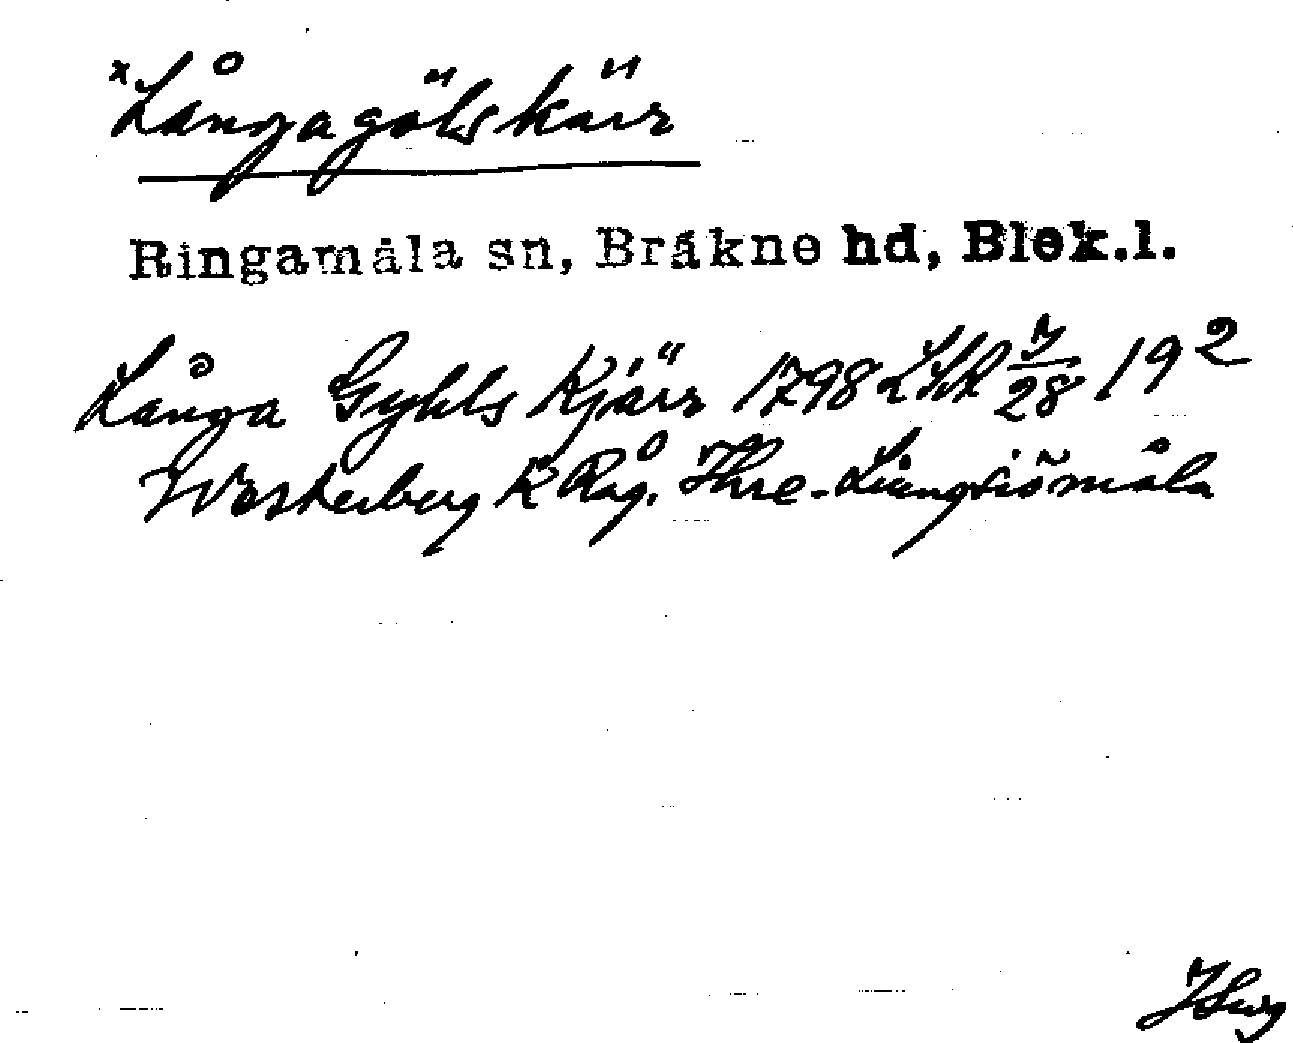 *Långagölskärr
Ringamåla sn, Bräkne hd, Blek.l.
Långa Gyhls Kjärr 1798 LSK 7/28 19²
Westerberg K Råg. Thre-Liungsiömåla